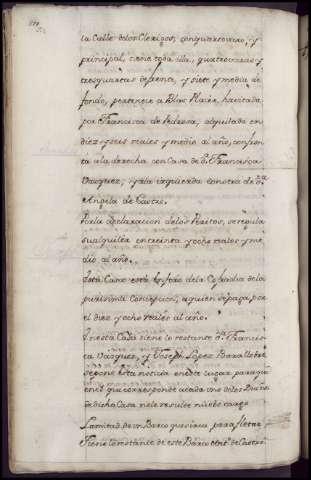 la Calle delos Clerigos, con quarto vaxo, y
principal, tiene toda ella, quatro varas y
tres quartas defrente, y siete y media de
fondo, pertenece a Blas
por Francisca de Pedrosa, alquilada en
diez y seis reales y medio al año, confron
ta ala derecha con Casa de D.ª Francisca
Vazquez, y ala izquierda con otra de D.ª
Angela de Castro.
Por la declaracion delos Peritos, se regula
su alquiler en treinta y ocho reales y me
dio al año.
Esta Casa esta de la Cofradia dela
purissima Concepcion, a quien se paga, por
el diez y ocho reales al año.
En esta Casa tiene lo restante D.ª Francis
ca Vazquez, y Joseph Lopez Barallobre
se pone esta noticia en este lugar para que
en el que corresponde a cada uno delos Dueños
de dicha Casa no le resulte nuebo cargo
La mitad de un Barco que sirve para fletar
Tiene lo restante de este Barco Ant.º de Castro